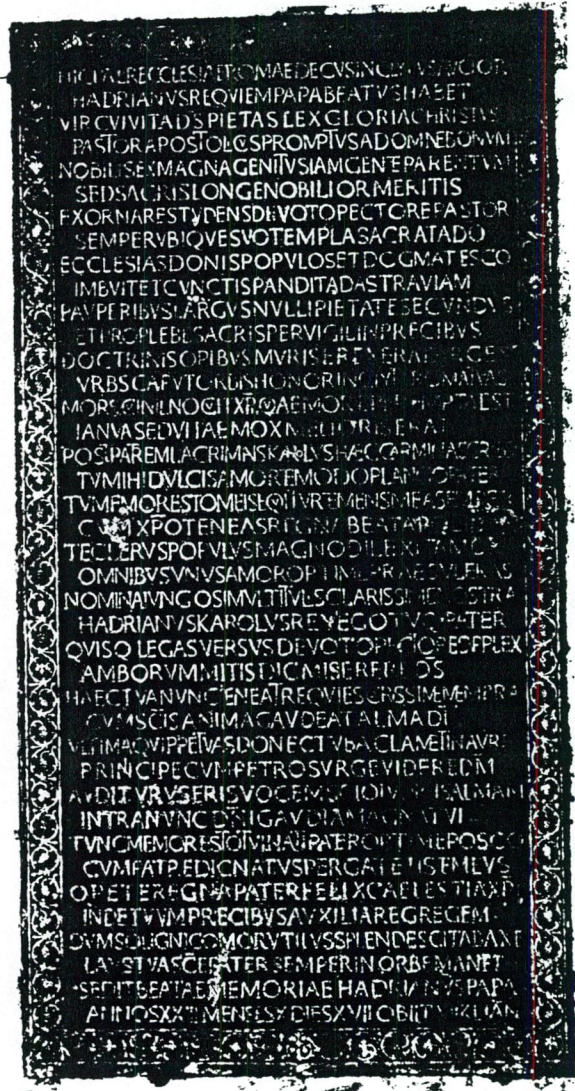 HICPATERECCLESIAEROMAEDECVSINCLYTVSAVCTOR
HADRIANVSREQVIEMPAPABEATVSHABET
VIRCVIVITADSPIETASLEXGLORIACHRISTVS
PASTORAPOSTOLICVSPROMPTVSADOMNEBONVM
NOBILISEXMAGNAGENITVSIAMGENTEPARENTVM
SEDSACRISLONGENOBILIORMERITIS
EXORNARESTVDENSDEVOTOPECTOREPASTOR
SEMPERVBIQVESVOTEMPLASACRATADO
ECCLESIASDONISPOPVLOSETDOGMATESCO
IMBVITETCVNCTISPANDITADASTRAVIAM
PAVPERIBVSLARGVSNVLLIPIETATESECVNDVS
ETPROPLEBESACRISPERVIGILINPRECIBVS
DOCTRINISOPIBVSMVRISEREXERATARCES
VRBSCAPVTORBISHONOR
MORS
IANVASEDVITAEMOXMELIORISERAT
POSTPATREMLACRIMANSKAROLVSHAECCARMINASCRIBSI
TVMIHIDVLCISAMORTEMODOPLANGOPATER
TVMEMORESTOMEISEQVITVRTEMENSMEASEMPER
CVMXPOTENEASREGNABEATA
TECLERVSPOPVLVSMAGNODILEXITAMORE
OMNIBVSVNVSAMOROPTIMEPRAESVLERAS
NOMINAIVNGOSIMVLTITVLISCLARISSIMENOSTRA
HADRIANVSKAROLVSREXEGOTVQ·PATER
QVISQ·LEGASVERSVSDEVOTOPECTORESVPPLEX
AMBORVMMITISDICMISEREREDS
HAECTVANVNCTENEATREQVIESCARISSIMEMEMBRA
CVMSCISANIMAGAVDEATALMADI
VLTIMAQVIPPETVASDONECTVBACLAMETINAVRES
PRINCIPECVMPETROSVRGEVIDEREDM
AVDITVRVSERISVOCEMSCIOIVDICISALMAM
INTRANVNCDNIGAVDIAMAGNATVI
TVNCMEMORESTOTVINATIPATEROPTIMEPOSCO
CVMPATREDICNATVSPERGATETISTEMEVS
OPETEREGNAPATERFELIXCAELESTIAXPI
INDETVVMPRECIBVSAVXILIAREGREGEM
DVMSOLIGNICOMORVTILVSSPLENDESCITABAXE
LAVSTVASCEPATERSEMPERINORBEMANET
SEDITBEATAEMEMORIAEHADRIANVSPAPA
ANNOSXXIIIMENSESXDIESXVIIOBIITVIIKLIAN